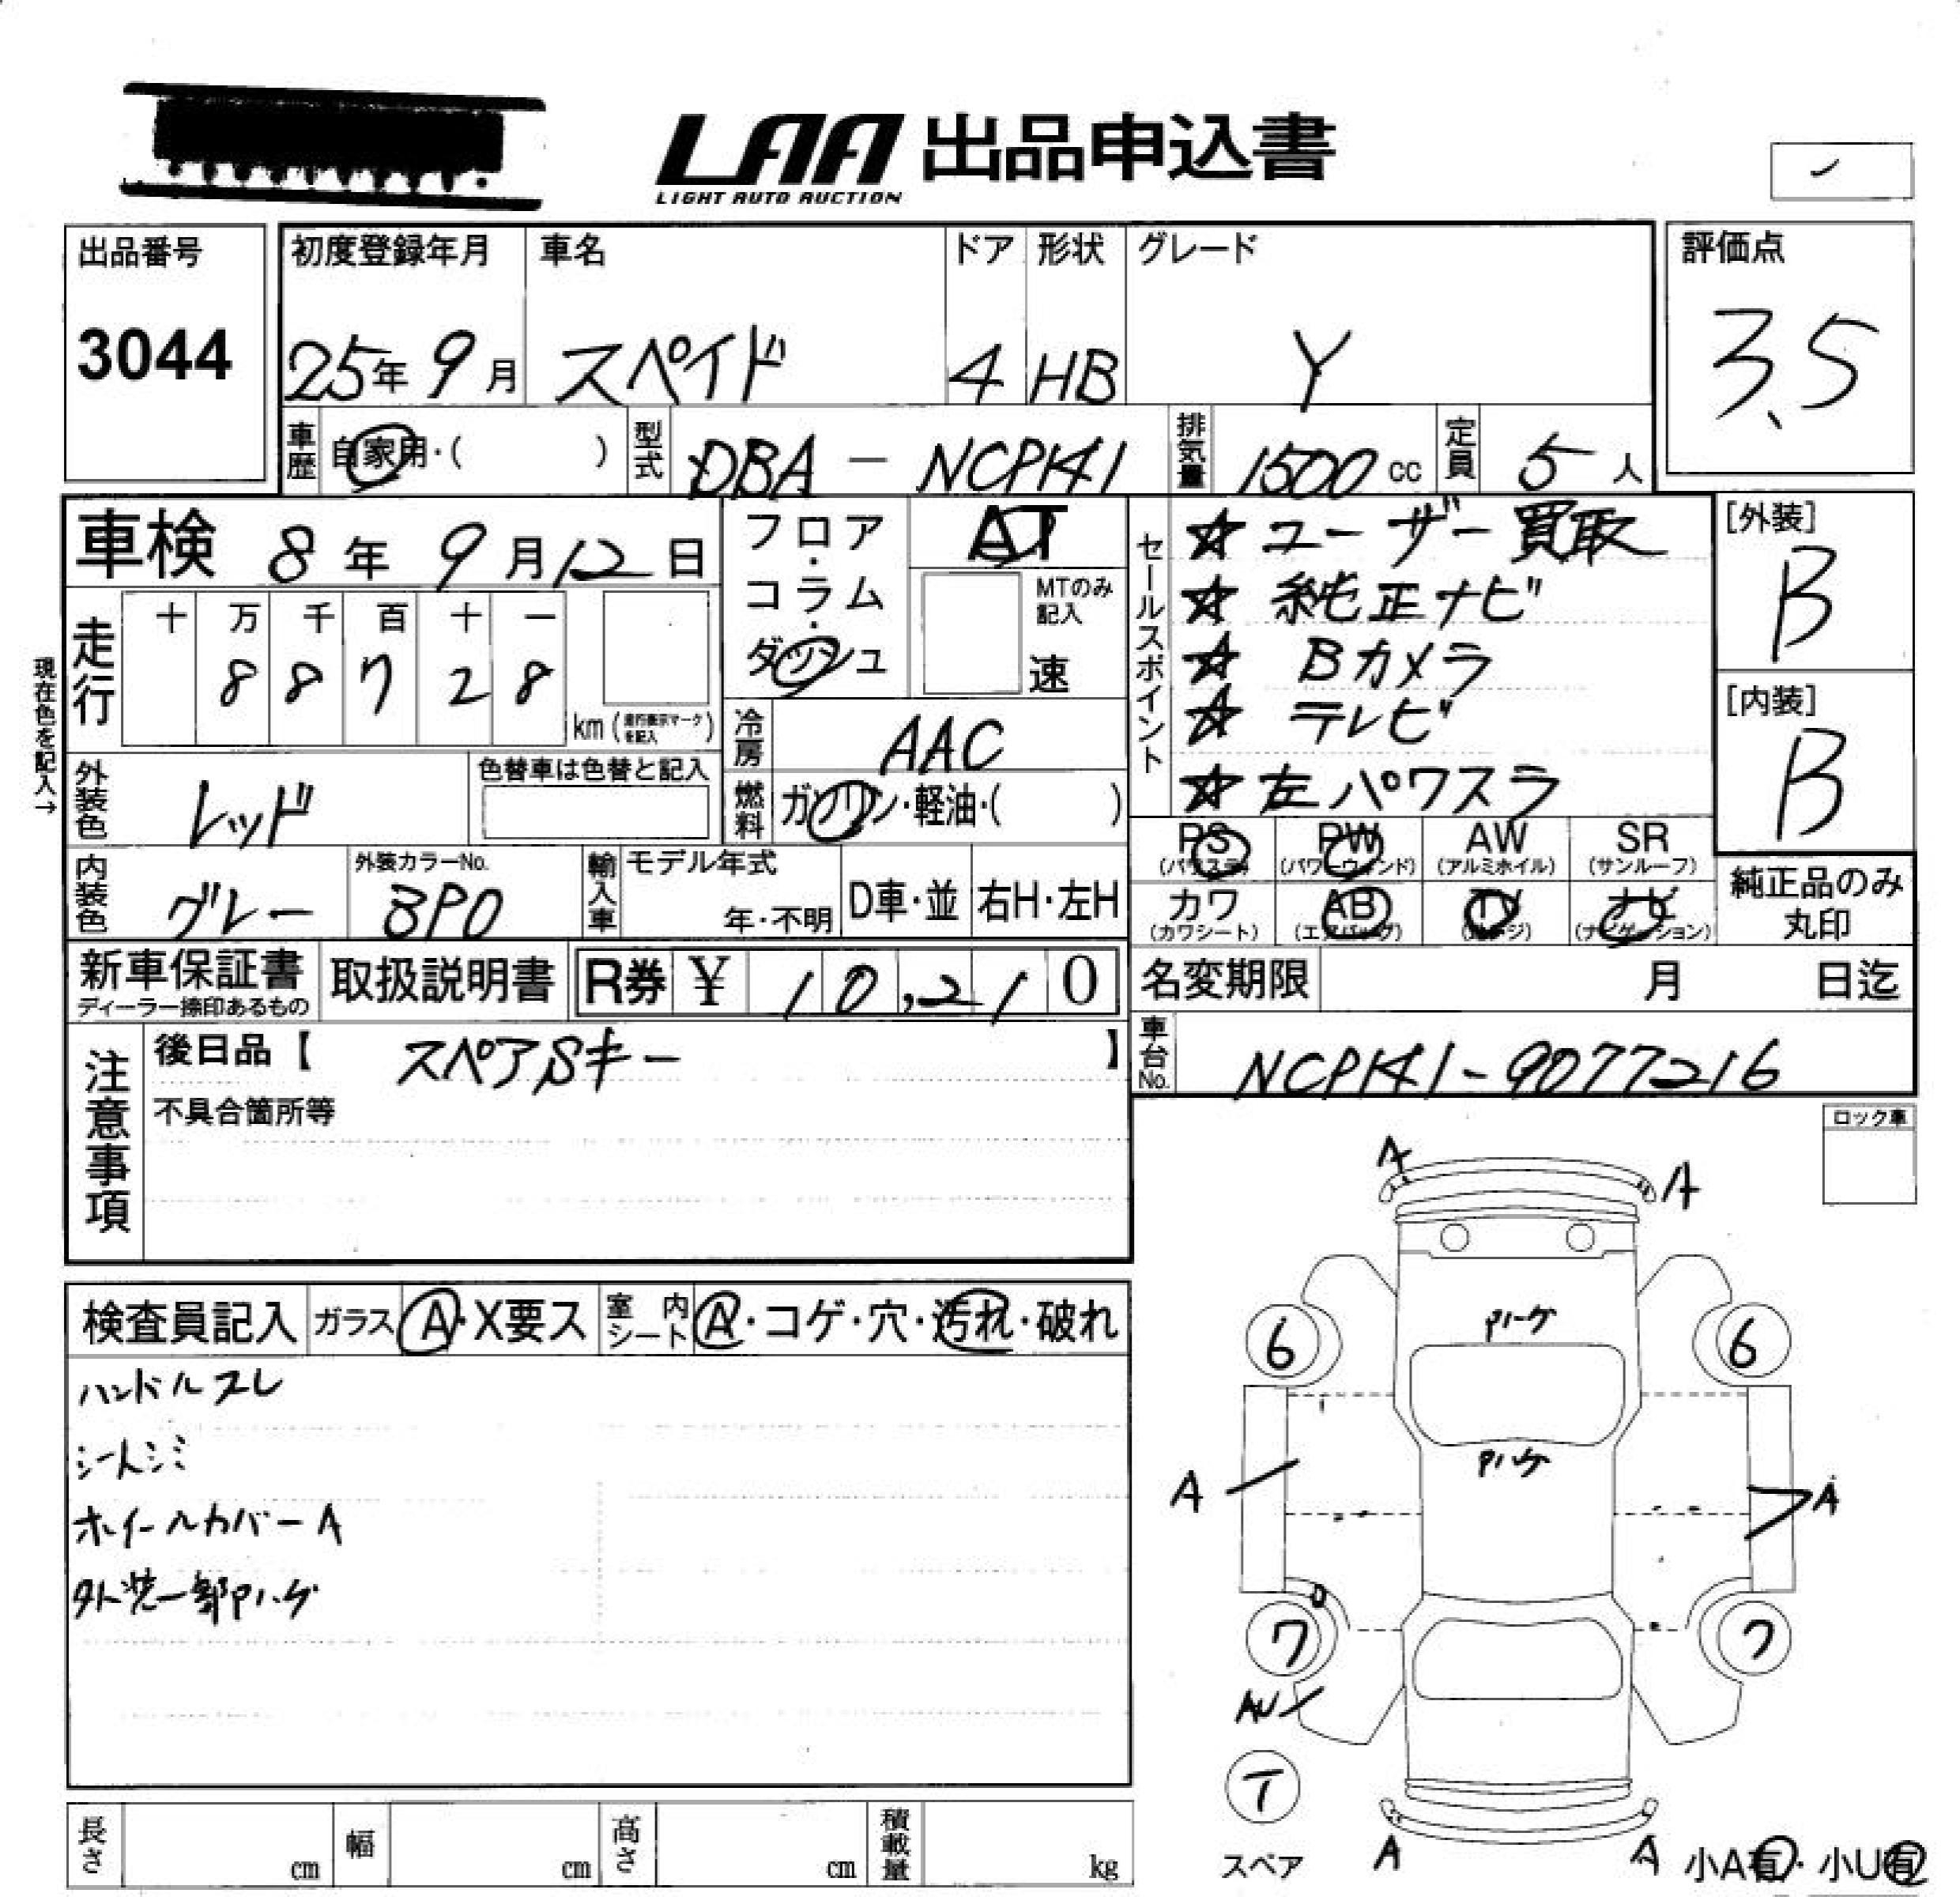 LAA 出品申込書
LIGHT AUTO AUCTION
出品番号
3044
初度登録年月
25年 9月
車名
スペイド
ドア
4
形状
HB
グレード
Y
評価点
3.5
車歴
自家用・( )
型式
DBA － NCP141
排気量
1500 cc
定員
5 人
車検 8年 9月12日
フロア・コラム・ダッシュ
AT
MTのみ記入
速
現在色を記入→
走行
十 万 千 百 十 一
8 8 7 2 8
km (走行表示マークを記入)
冷房
AAC
燃料
ガソリン・軽油・( )
外装色
レッド
色替車は色替と記入
内装色
グレー
外装カラーNo.
3P0
輸入車
モデル年式
年・不明
D車・並
右H・左H
セールスポイント
☆ ユーザー買取
☆ 純正ナビ
☆ Bカメラ
☆ テレビ
☆ 左パワスラ
[外装]
B
[内装]
B
PS (パワステ)
PW (パワーウィンド)
AW (アルミホイル)
SR (サンルーフ)
カワ (カワシート)
AB (エアバッグ)
TV
ナビ (ナビゲーション)
純正品のみ丸印
新車保証書
ディーラー捺印あるもの
取扱説明書
R券 ¥ 10,210
名変期限
月 日迄
車台No.
NCP141-9077216
注意事項
後日品【 スペアSキー 】
不具合箇所等
ロック車
検査員記入
ガラス A・X要ス
室内シート A・コゲ・穴・汚れ・破れ
ハンドルスレ
シートシミ
ホイールカバーA
外装一部Pハゲ
A
A
Pハゲ
6
6
Pハゲ
A
A
7
7
AU
T
スペア
A
A
小A有・小U有
2
長さ
cm
幅
cm
高さ
cm
積載量
kg